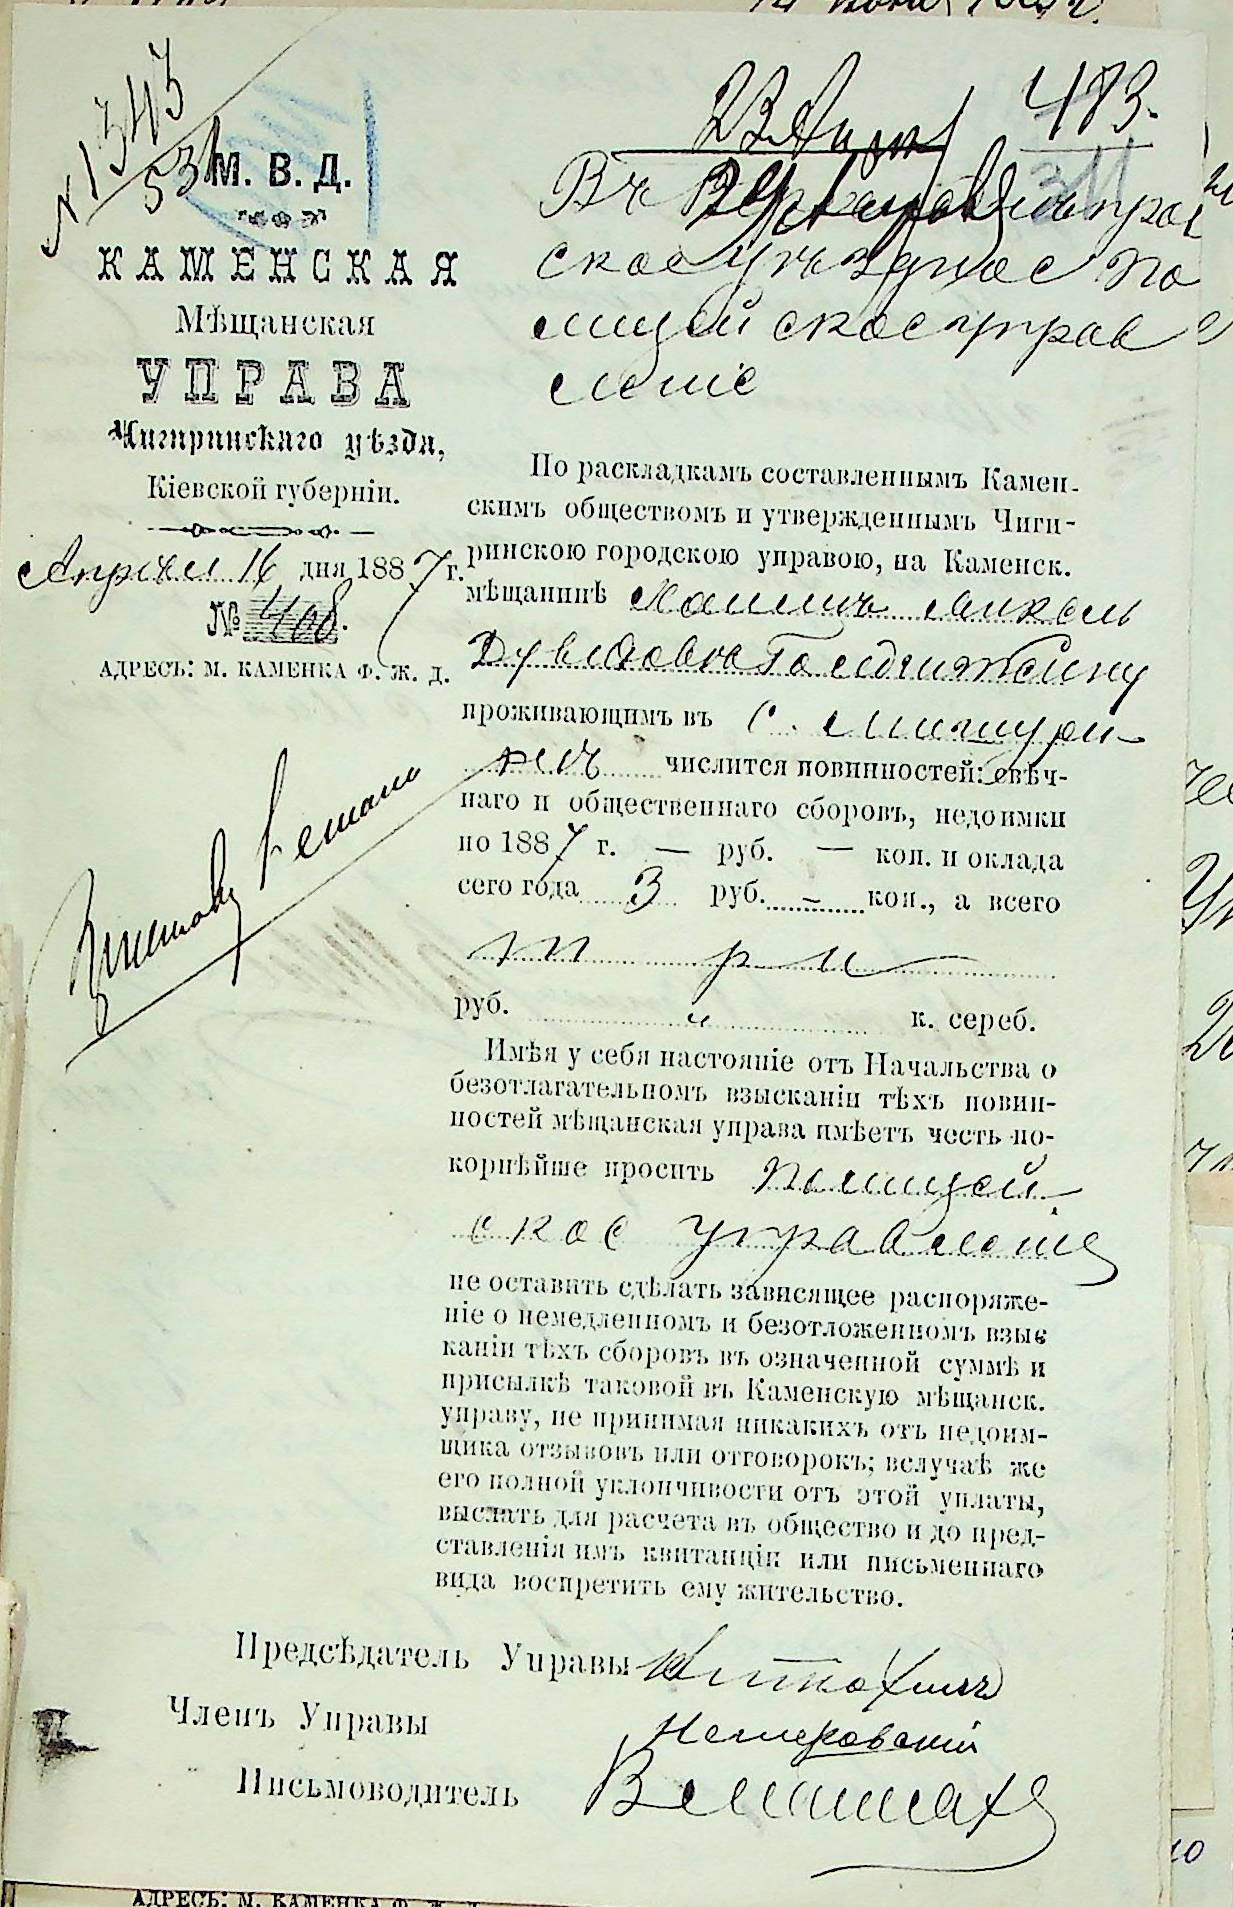 N 1343
531
М. В. Д.
КАМЕНСКАЯ
Мѣщанская
УПРАВА
Чигиринскаго уѣзда,
Кіевской губерніи.
Апрѣля 16 дня 1887 г.
№ 408.
АДРЕСЪ: М. КАМЕНКА Ф. Ж. Д.
483.
Въ
ское уѣздное по
лицейское управ
леніе
По раскладкамъ составленнымъ Камен-
скимъ обществомъ и утвержденнымъ Чиги-
ринскою городскою управою, на Каменск.
мѣщанинѣ Хаимъ Янкель
Дувидовѣ
проживающимъ въ с. Мишури-
нѣ числится повинностей: свѣч-
наго и общественнаго сборовъ, недоимки
по 1887 г. — руб. — коп. и оклада
сего года 3 руб. - коп., а всего
три
руб. " к. сереб.
Имѣя у себя настояніе отъ Начальства о
безотлагательномъ взысканіи тѣхъ повин-
ностей мѣщанская управа имѣетъ честь по-
корнѣйше просить Полицей-
ское управленіе
не оставить сдѣлать зависящее распоряже-
ніе о немедленномъ и безотложенномъ взыс
каніи тѣхъ сборовъ въ означенной суммѣ и
присылкѣ таковой въ Каменскую мѣщанск.
управу, не принимая никакихъ отъ недоим-
щика отзывовъ или отговорокъ; вслучаѣ же
его полной уклончивости отъ этой уплаты,
выслать для расчета въ общество и до пред-
ставленія имъ квитанціи или письменнаго
вида воспретить ему жительство.
Предсѣдатель Управы
Членъ Управы Немеровскій
Письмоводитель
АДРЕСЪ: М. КАМЕНКА Ф. Ж. Д.